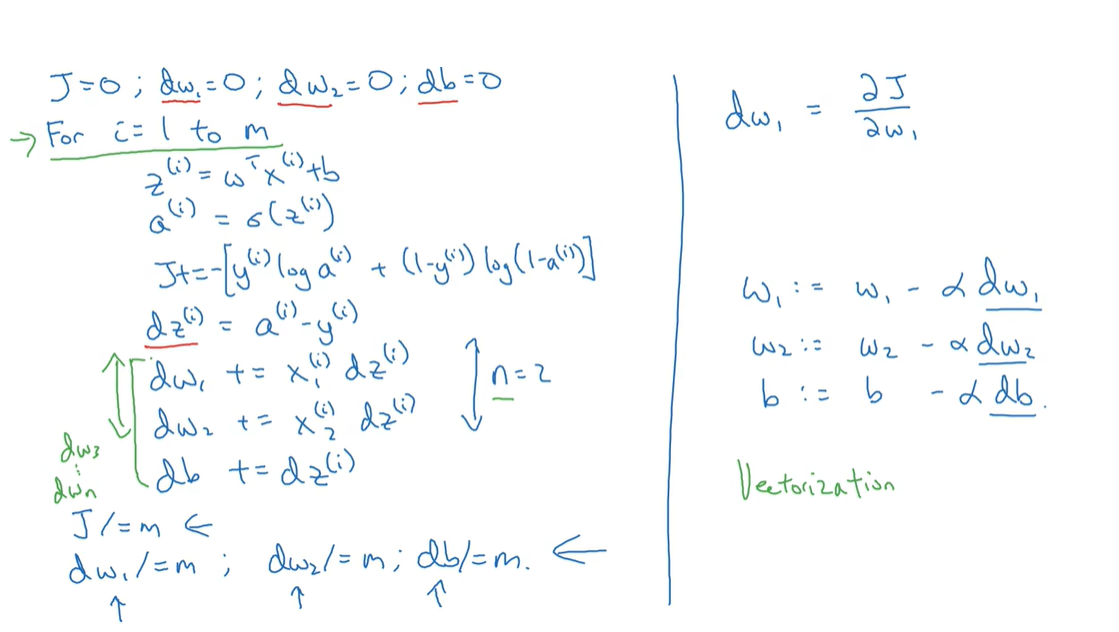 J=0 ; dw₁=0 ; dw₂=0 ; db=0
→ For i= 1 to m
z⁽ⁱ⁾ = ωᵀx⁽ⁱ⁾+b
a⁽ⁱ⁾ = σ(z⁽ⁱ⁾)
J+=-[y⁽ⁱ⁾ log a⁽ⁱ⁾ + (1-y⁽ⁱ⁾) log(1-a⁽ⁱ⁾)]
dz⁽ⁱ⁾ = a⁽ⁱ⁾-y⁽ⁱ⁾
dw₁ += x₁⁽ⁱ⁾ dz⁽ⁱ⁾
dw₂ += x₂⁽ⁱ⁾ dz⁽ⁱ⁾
n=2
db += dz⁽ⁱ⁾
dw₃
⋮
dwₙ
J/=m ←
dw₁/=m ; dw₂/=m ; db/=m. ←
↑ ↑ ↑
dw₁ = ∂J/∂w₁
w₁ := w₁ - α dw₁
w₂ := w₂ - α dw₂
b := b - α db.
Vectorization